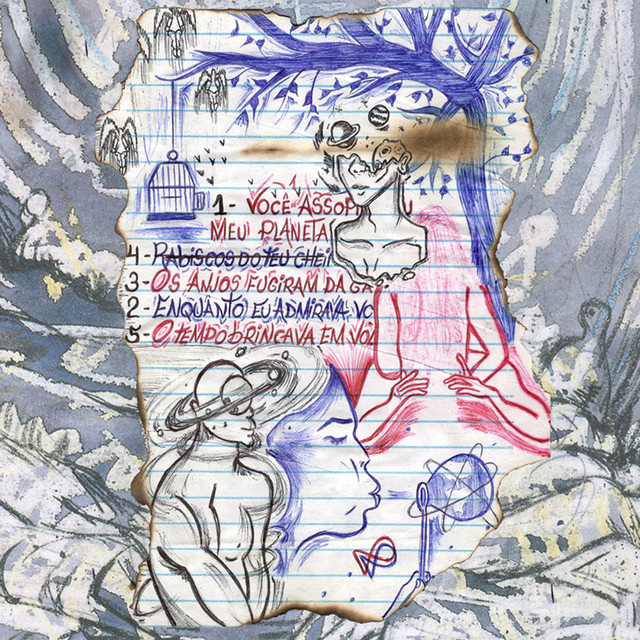 1- VOCÊ ASSOP U
MEU PLANETA
4- RABISCOS DO TEU CHEI
3- OS ANJOS FUGIRAM DA GA
2- ENQUANTO EU ADMIRAVA VO
5- O TEMPO BRINCAVA EM VOL